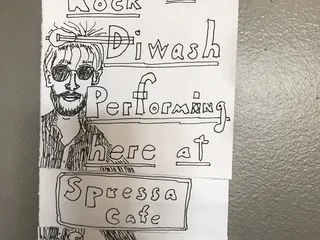 Rock
Diwash
Performing
here at
Spressa
Cafe